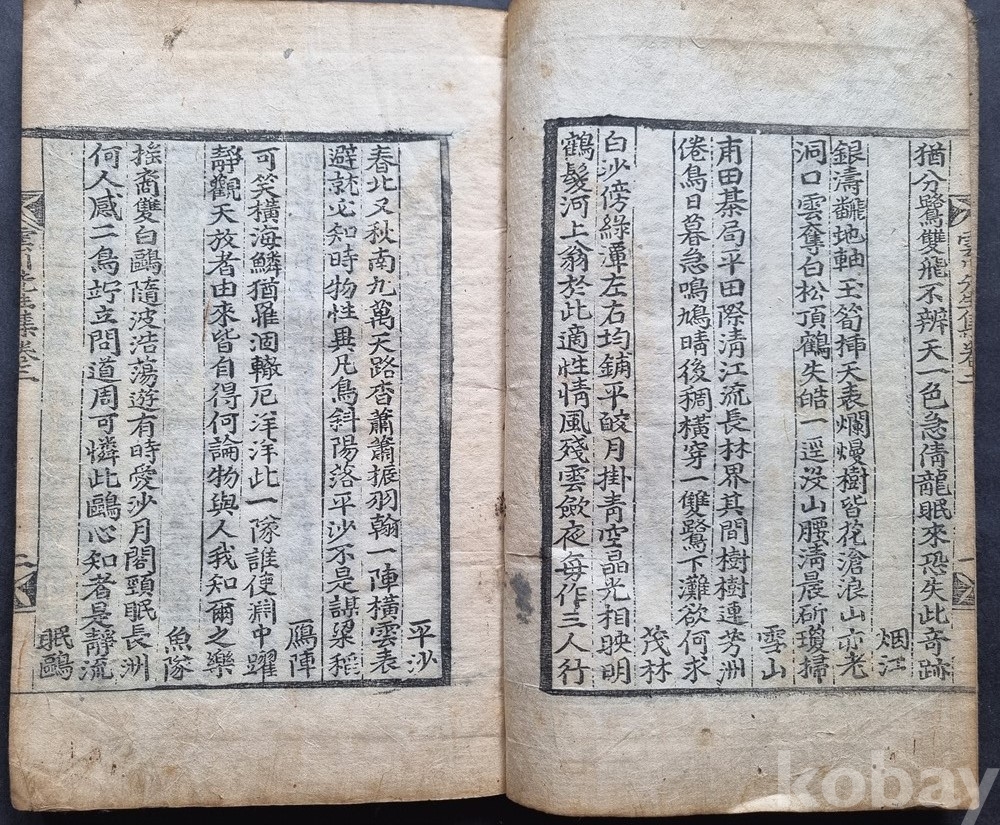 猶分鷺雙飛不辨天一色急倩龍眠來恐失此奇跡
烟江
銀濤飜地軸玉筍揷天表爛熳樹皆花滄浪山亦老
洞口雲奪白松頂鶴失皓一逕沒山腰淸晨斫瓊掃
雪山
甫田棊局平田際淸江流長林界其間樹樹連芳洲
倦鳥日暮急鳴鳩晴後稠橫穿一雙鷺下灘欲何求
茂林
白沙傍綠潭左右均鋪平皎月掛靑空晶光相映明
鶴髮河上翁於此適性情風殘雲歛夜每作三人行
平沙
春北又秋南九萬天路杳蕭蕭振羽翰一陣橫雲表
避就必知時物性異凡鳥斜陽落平沙不是謀粱稻
鴈陣
可笑橫海鱗猶罹涸轍厄洋洋此一隊誰使淵中躍
靜觀天放者由來皆自得何論物與人我知爾之樂
魚隊
搖裔雙白鷗隨波浩蕩遊有時愛沙月閣頸眠長洲
何人感二鳥竚立問道周可憐此鷗心知者是靜流
眠鷗
kobay